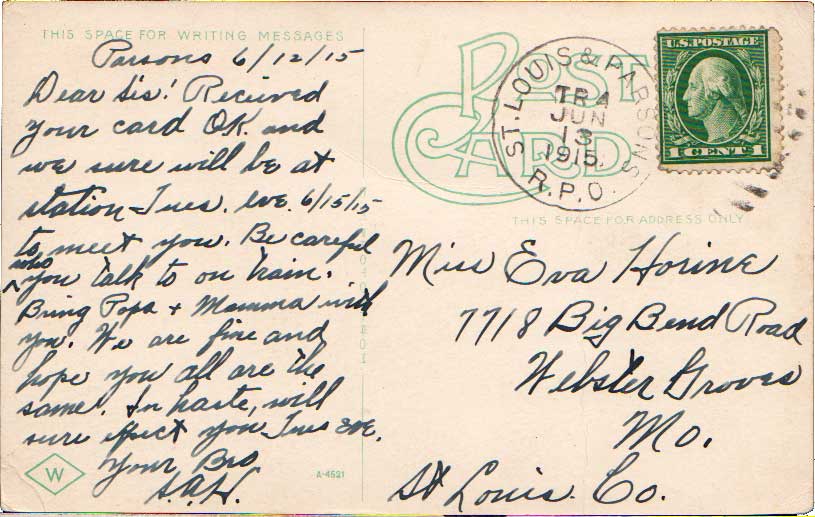 THIS SPACE FOR WRITING MESSAGES
Parsons 6/12/15
Dear Sis! Recieved
your card OK. and
we sure will be at
station - Tues. eve. 6/15/15
to meet you. Be careful
who
you talk to on train.
Bring Popa + Momma with
you. We are fine and
hope you all are the
same. In haste, will
sure expect you Tues eve.
Your Bro
S.A.H.
W
A-4521
POST
CARD
ST. LOUIS & PARSONS
TR 4
JUN
13
1915.
R.P.O.
U.S. POSTAGE
1 CENT 1
THIS SPACE FOR ADDRESS ONLY
Miss Eva Horine
7718 Big Bend Road
Webster Groves
Mo.
St Louis. Co.